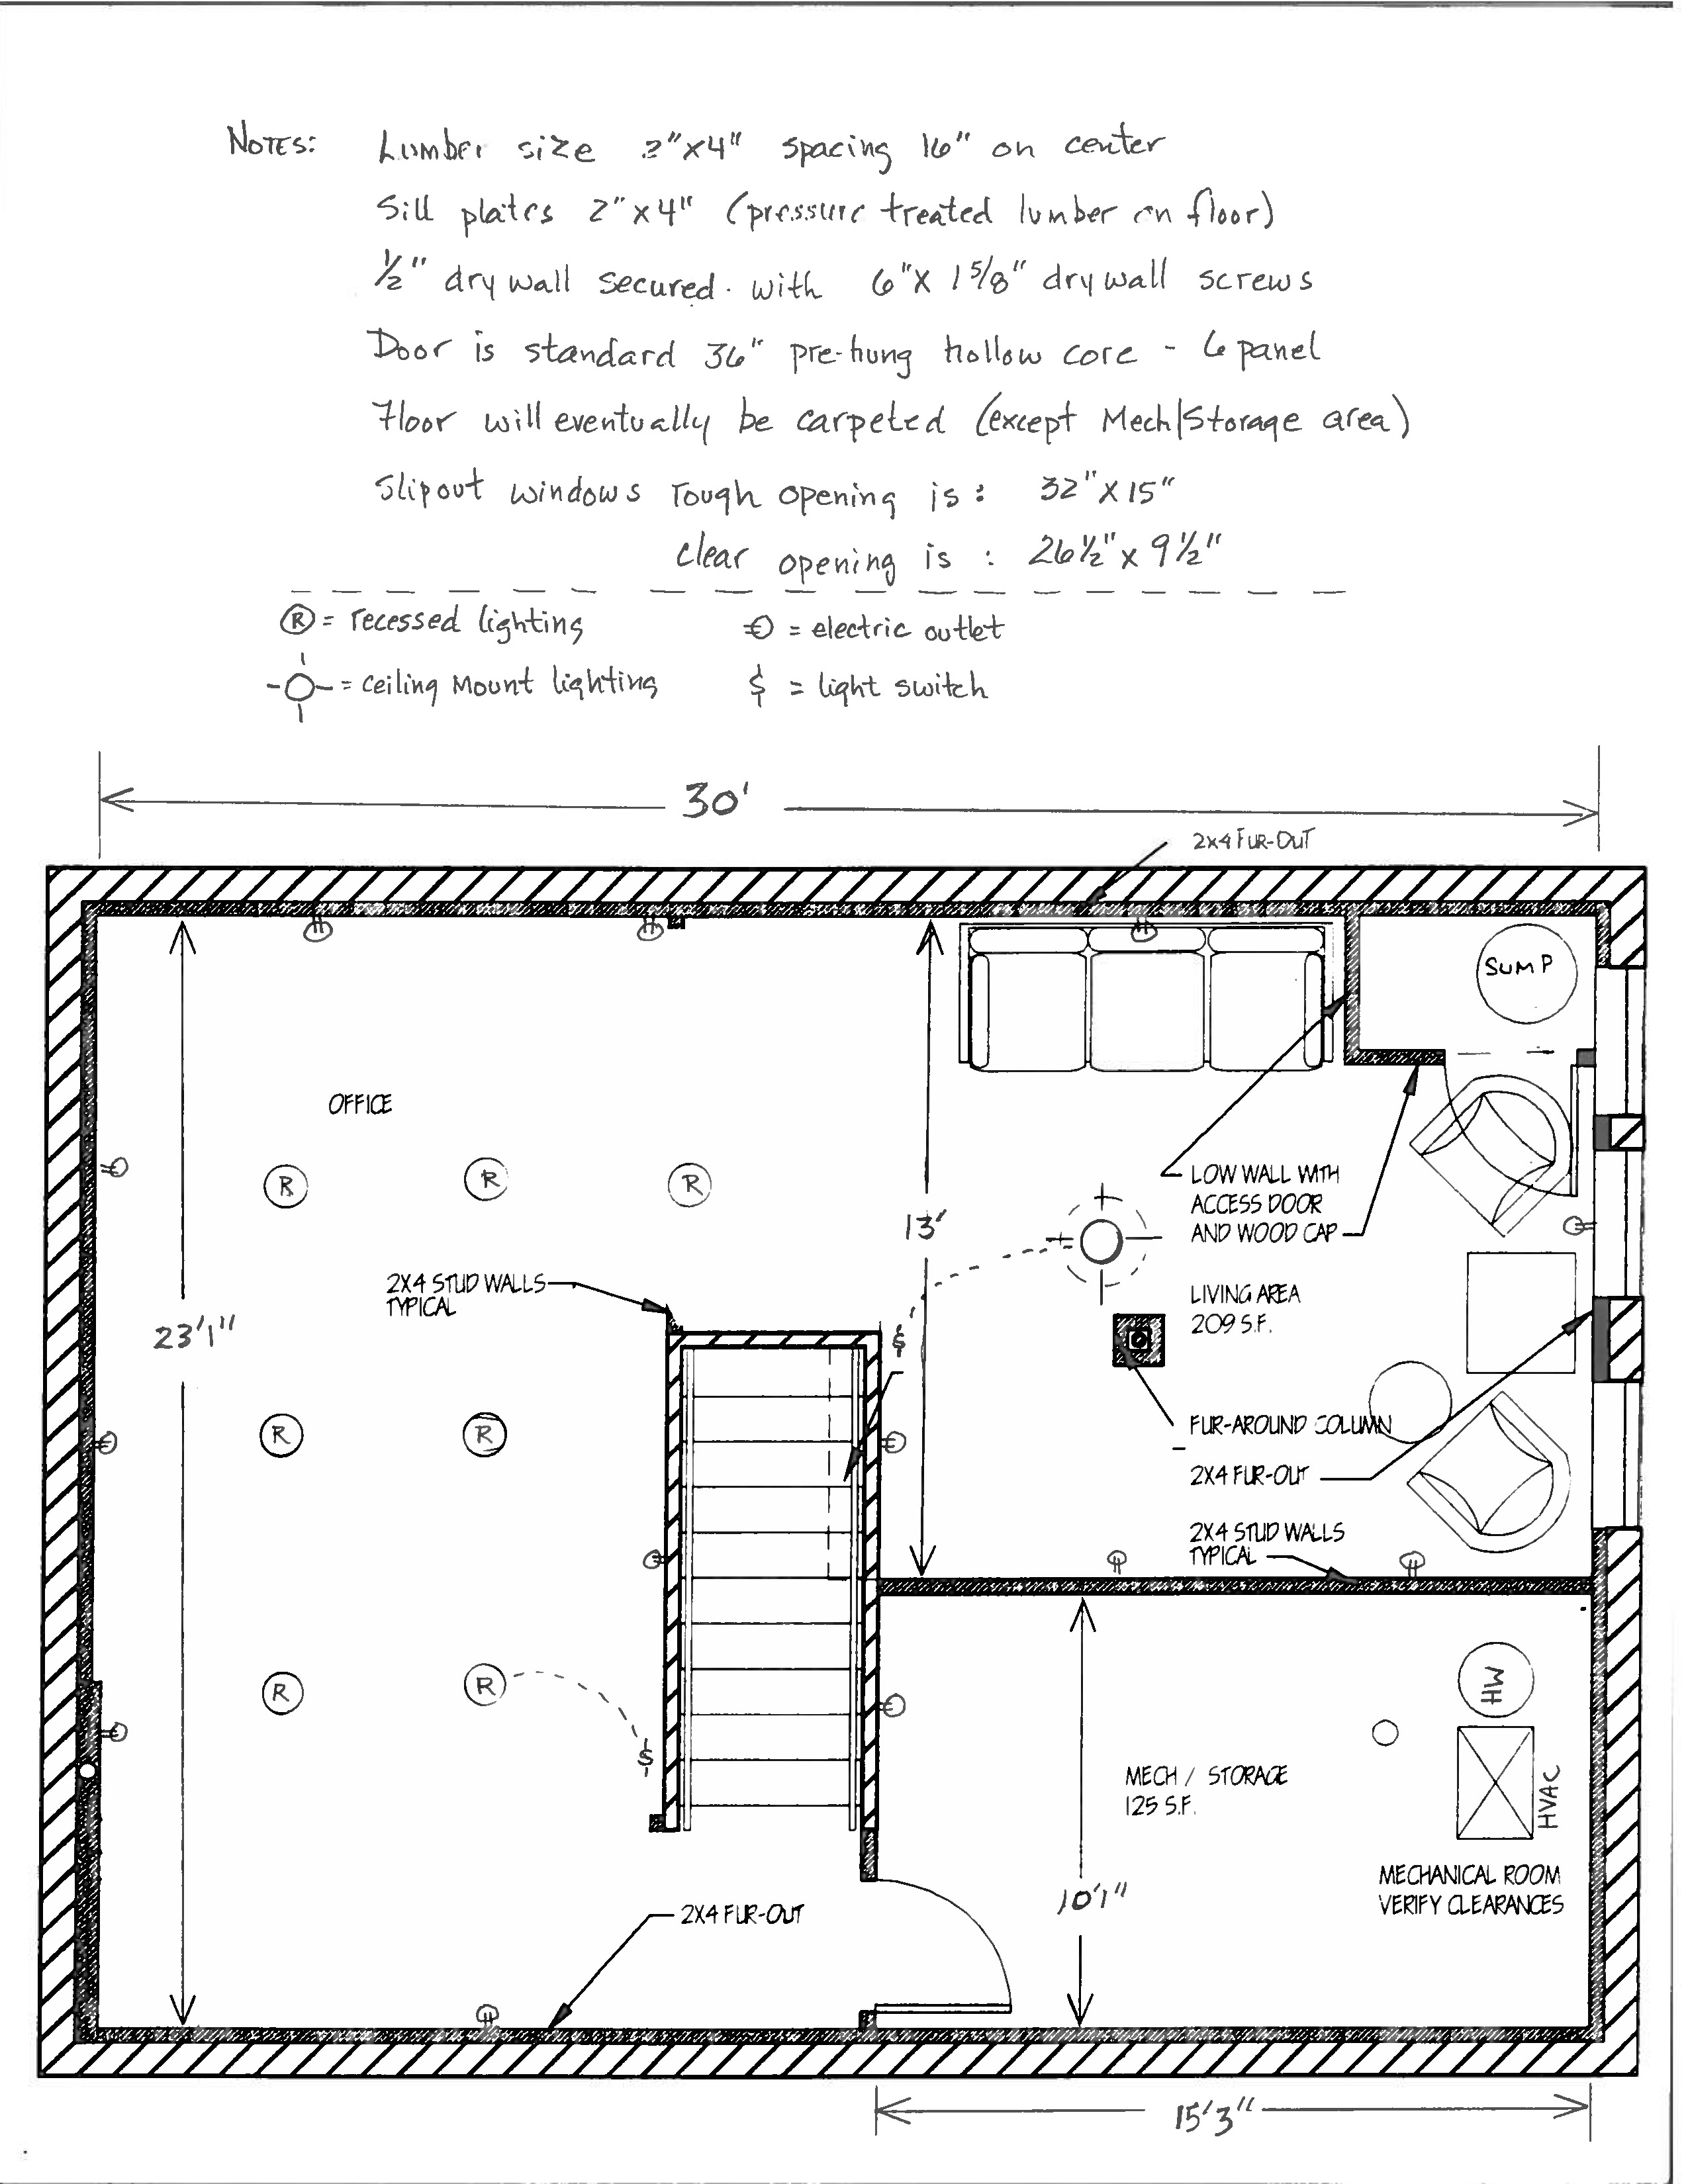 NOTES: Lumber size 2"x4" spacing 16" on center
Sill plates 2"x4" (pressure treated lumber on floor)
1/2" drywall secured with 6"x 1 5/8" drywall screws
Door is standard 36" pre-hung hollow core - 6 panel
Floor will eventually be carpeted (except Mech/Storage area)
Slipout windows rough opening is: 32"x15"
clear opening is: 26 1/2" x 9 1/2"
Ⓡ = recessed lighting
= electric outlet
= ceiling mount lighting
$ = light switch
30'
2x4 FUR-OUT
SUMP
OFFICE
R R R
LOW WALL WITH
ACCESS DOOR
AND WOOD CAP
13'
2X4 STUD WALLS
TYPICAL
23'1"
LIVING AREA
209 S.F.
$
FUR-AROUND COLUMN
R R
2X4 FUR-OUT
2X4 STUD WALLS
TYPICAL
R R
$
HW
MECH / STORAGE
125 S.F.
HVAC
MECHANICAL ROOM
VERIFY CLEARANCES
10'1"
2X4 FUR-OUT
15'3"